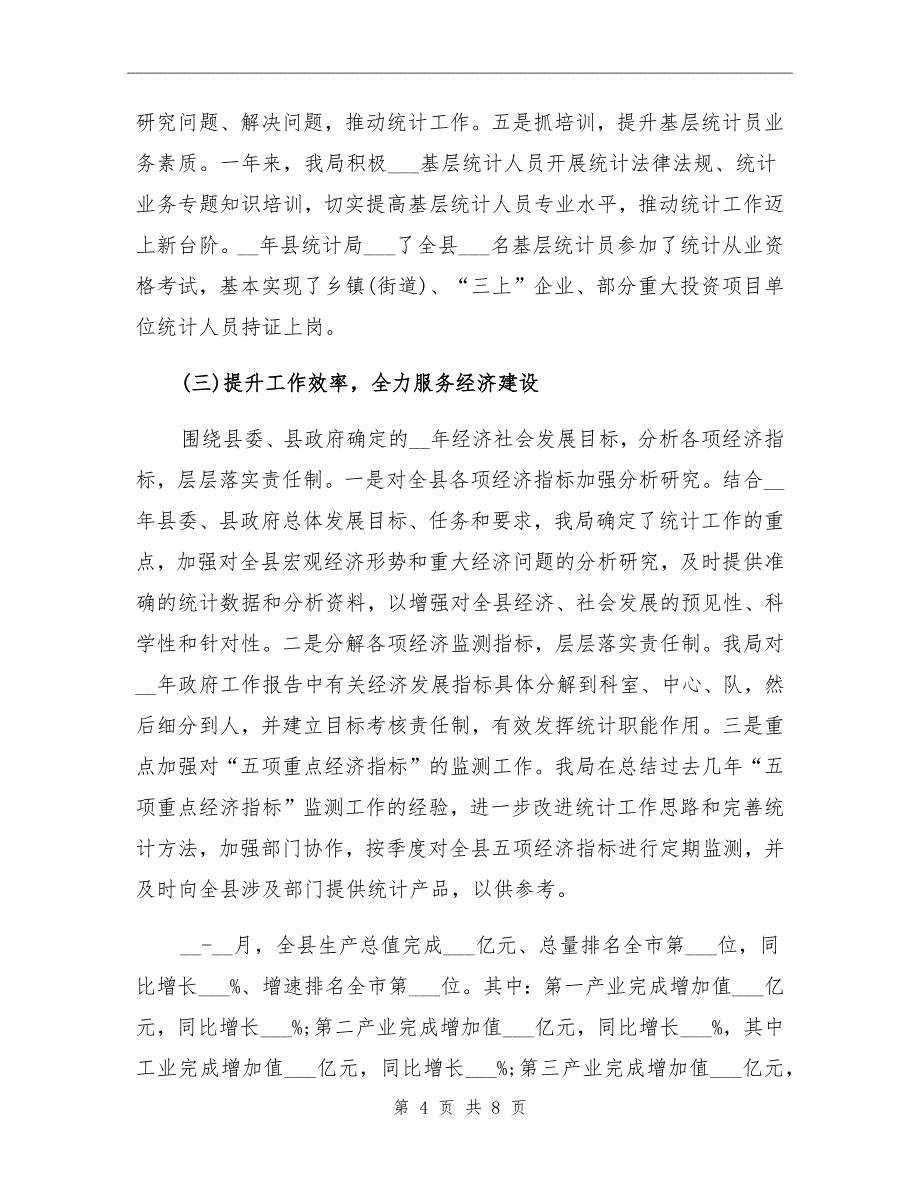 研究问题、解决问题，推动统计工作。五是抓培训，提升基层统计员业
务素质。一年来，我局积极___基层统计人员开展统计法律法规、统计
业务专题知识培训，切实提高基层统计人员专业水平，推动统计工作迈
上新台阶。__年县统计局___了全县___名基层统计员参加了统计从业资
格考试，基本实现了乡镇(街道)、“三上”企业、部分重大投资项目单
位统计人员持证上岗。
(三)提升工作效率，全力服务经济建设
围绕县委、县政府确定的__年经济社会发展目标，分析各项经济指
标，层层落实责任制。一是对全县各项经济指标加强分析研究。结合__
年县委、县政府总体发展目标、任务和要求，我局确定了统计工作的重
点，加强对全县宏观经济形势和重大经济问题的分析研究，及时提供准
确的统计数据和分析资料，以增强对全县经济、社会发展的预见性、科
学性和针对性。二是分解各项经济监测指标，层层落实责任制。我局对
__年政府工作报告中有关经济发展指标具体分解到科室、中心、队，然
后细分到人，并建立目标考核责任制，有效发挥统计职能作用。三是重
点加强对“五项重点经济指标”的监测工作。我局在总结过去几年“五
项重点经济指标”监测工作的经验，进一步改进统计工作思路和完善统
计方法，加强部门协作，按季度对全县五项经济指标进行定期监测，并
及时向全县涉及部门提供统计产品，以供参考。
__-__月，全县生产总值完成___亿元、总量排名全市第___位，同
比增长___%、增速排名全市第___位。其中：第一产业完成增加值___亿
元，同比增长___%;第二产业完成增加值___亿元，同比增长___%，其中
工业完成增加值___亿元，同比增长___%;第三产业完成增加值___亿元，
第 4 页 共 8 页